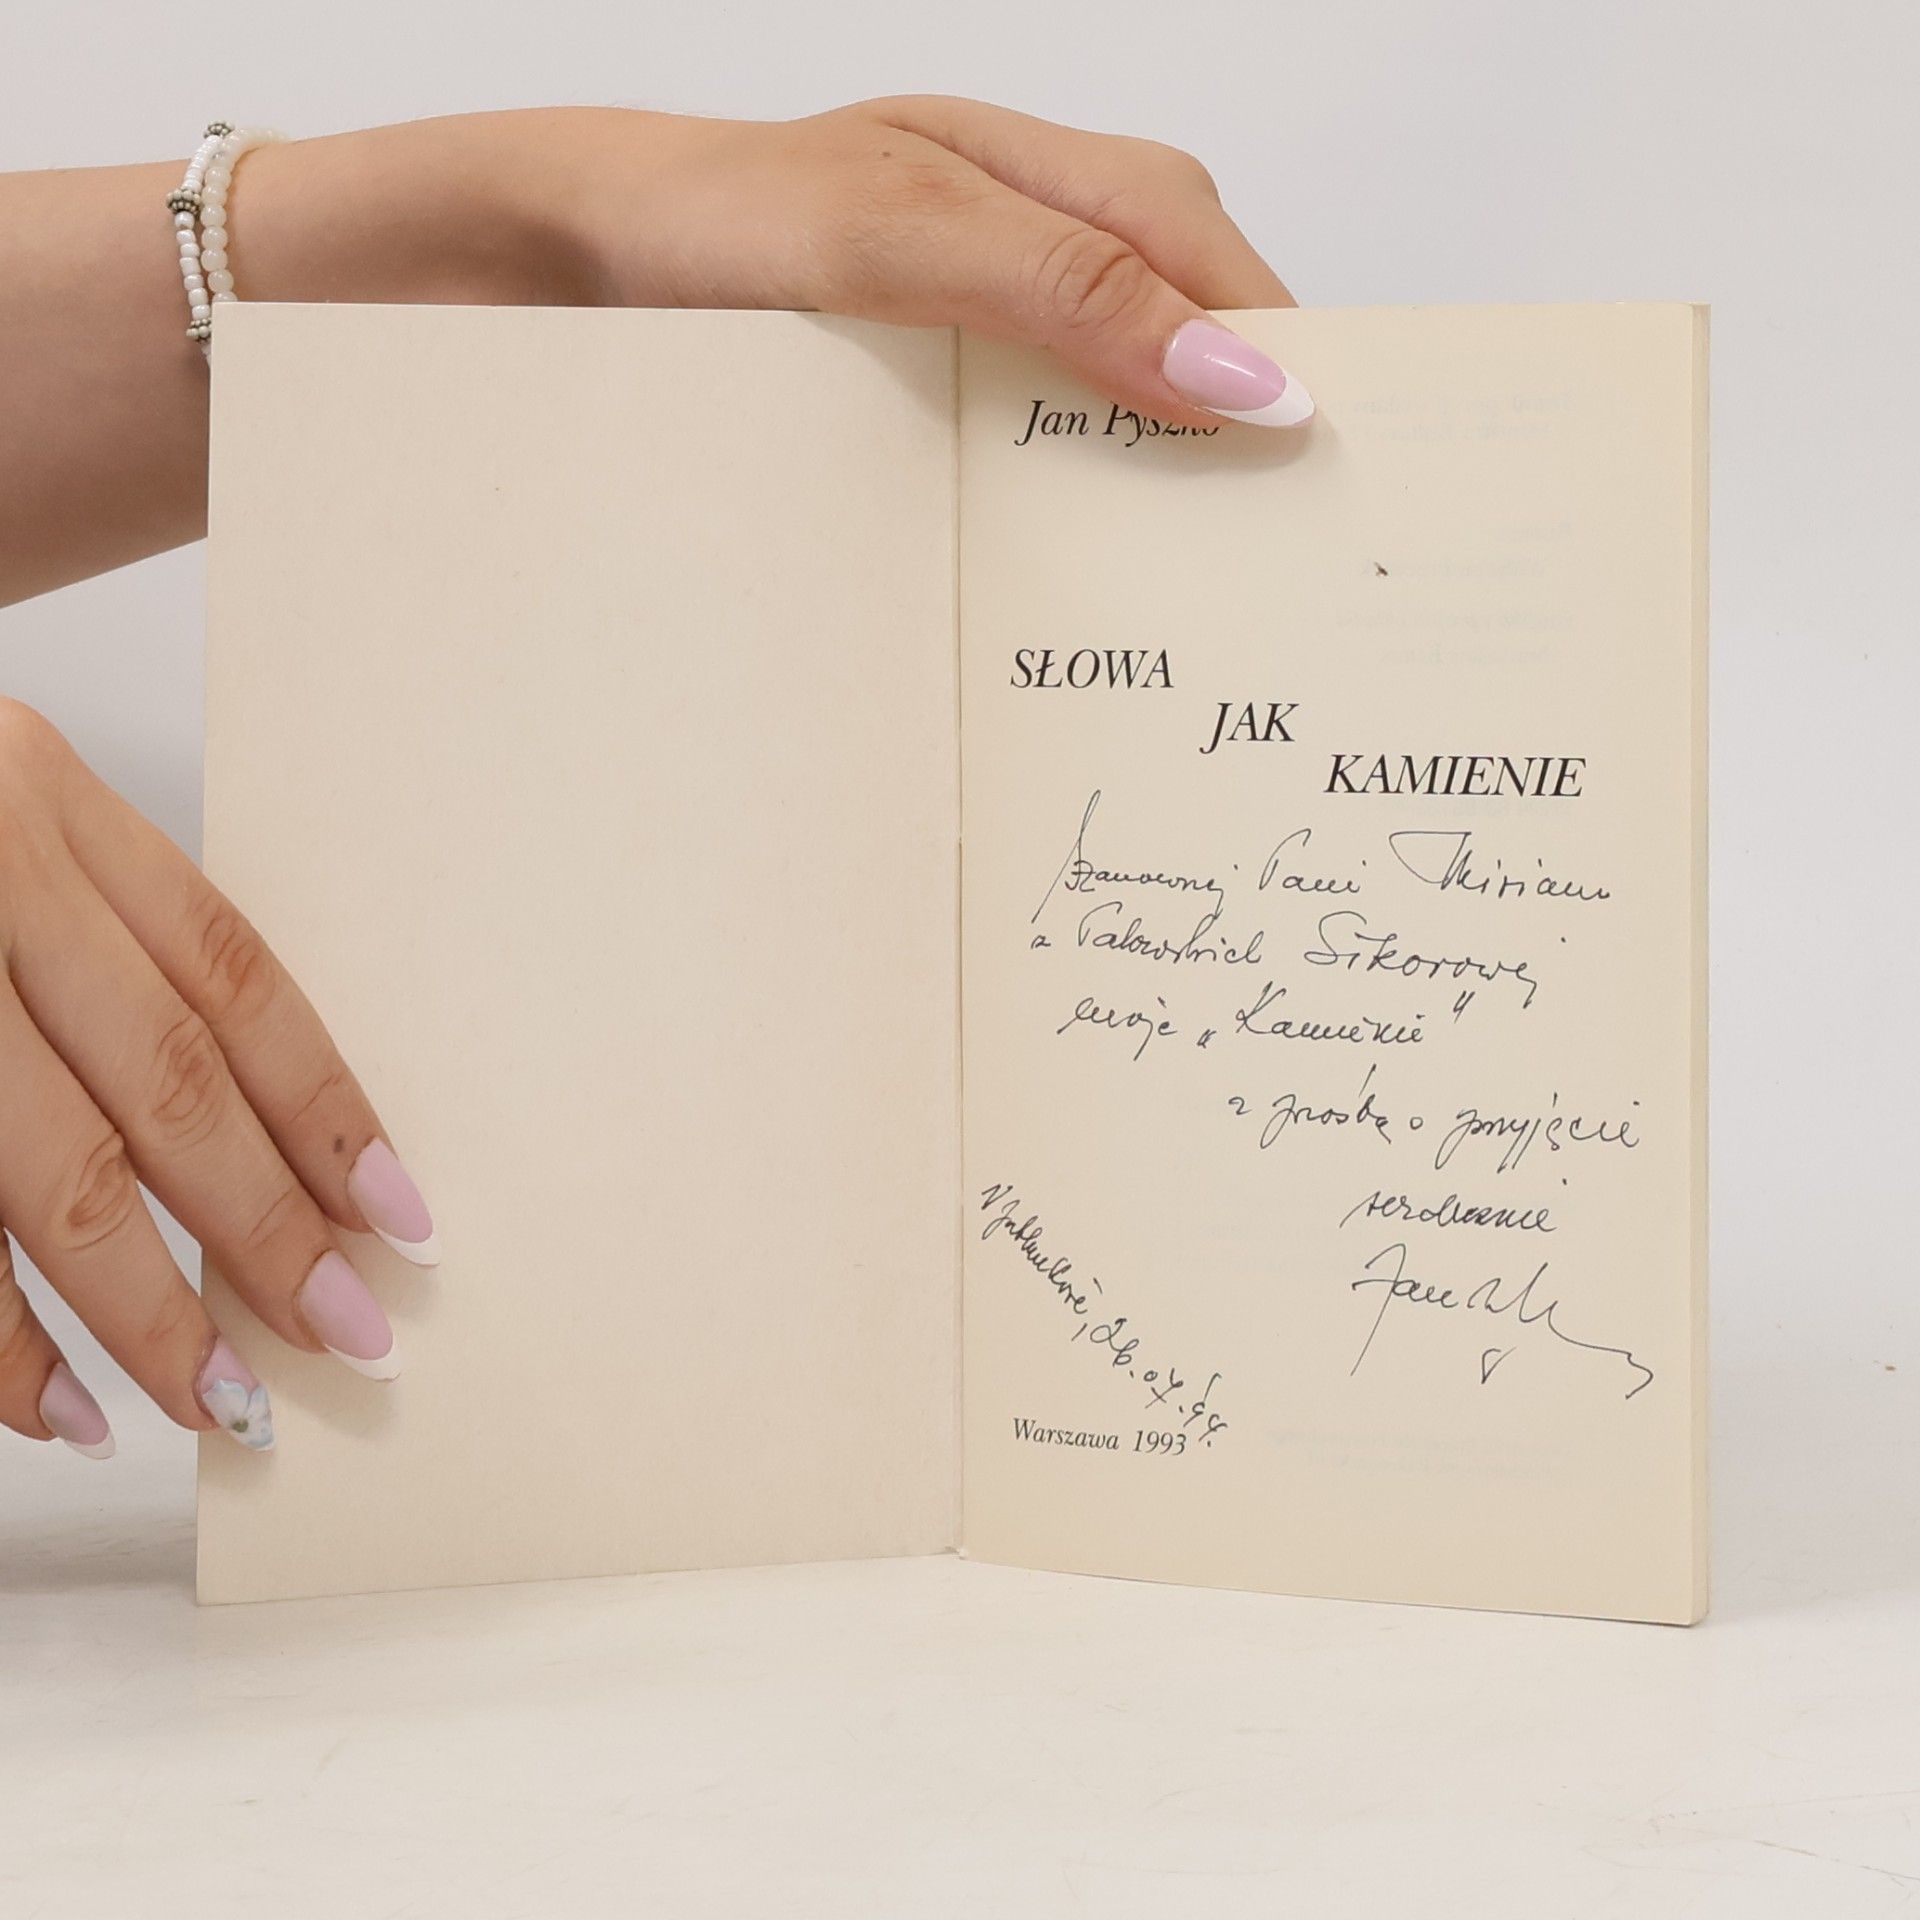 Jan Pyszko
SŁOWA
JAK
KAMIENIE
Szanownej Pani Miriam
z Pałowskich Sikorowej
moje „Kamienie"
z prośbą o przyjęcie
serdecznie
Jan
V Jabłonkowie, 26.07.94.
Warszawa 1993